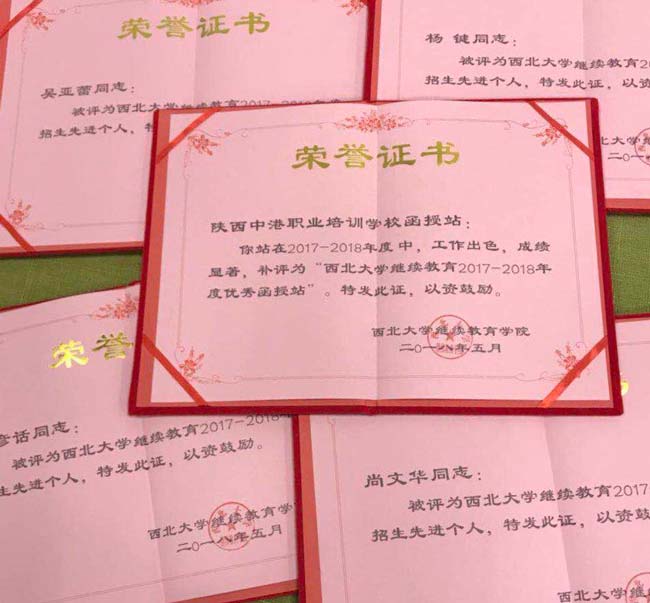 荣誉证书
吴亚蕾同志：
被评为西北大学继续教育2017-2018年度
招生先进个人，特
杨 键同志：
被评为西北大学继续教育20
招生先进个人，特发此证，以资
西北大学继续教
二〇一八年五
荣誉证书
陕西中港职业培训学校函授站：
你站在2017-2018年度中，工作出色，成绩
显著，补评为“西北大学继续教育2017-2018年
度优秀函授站”。特发此证，以资鼓励。
西北大学继续教育学院
二〇一八年五月
荣誉
话同志：
被评为西北大学继续教育2017-2018
先进个人，特发此证，以资鼓励。
西北大学继续教育学院
二〇一八年五月
尚文华同志：
被评为西北大学继续教育2017
招生先进个人，特发此证，以资鼓
西北大学继续教育学
二〇一八年五月